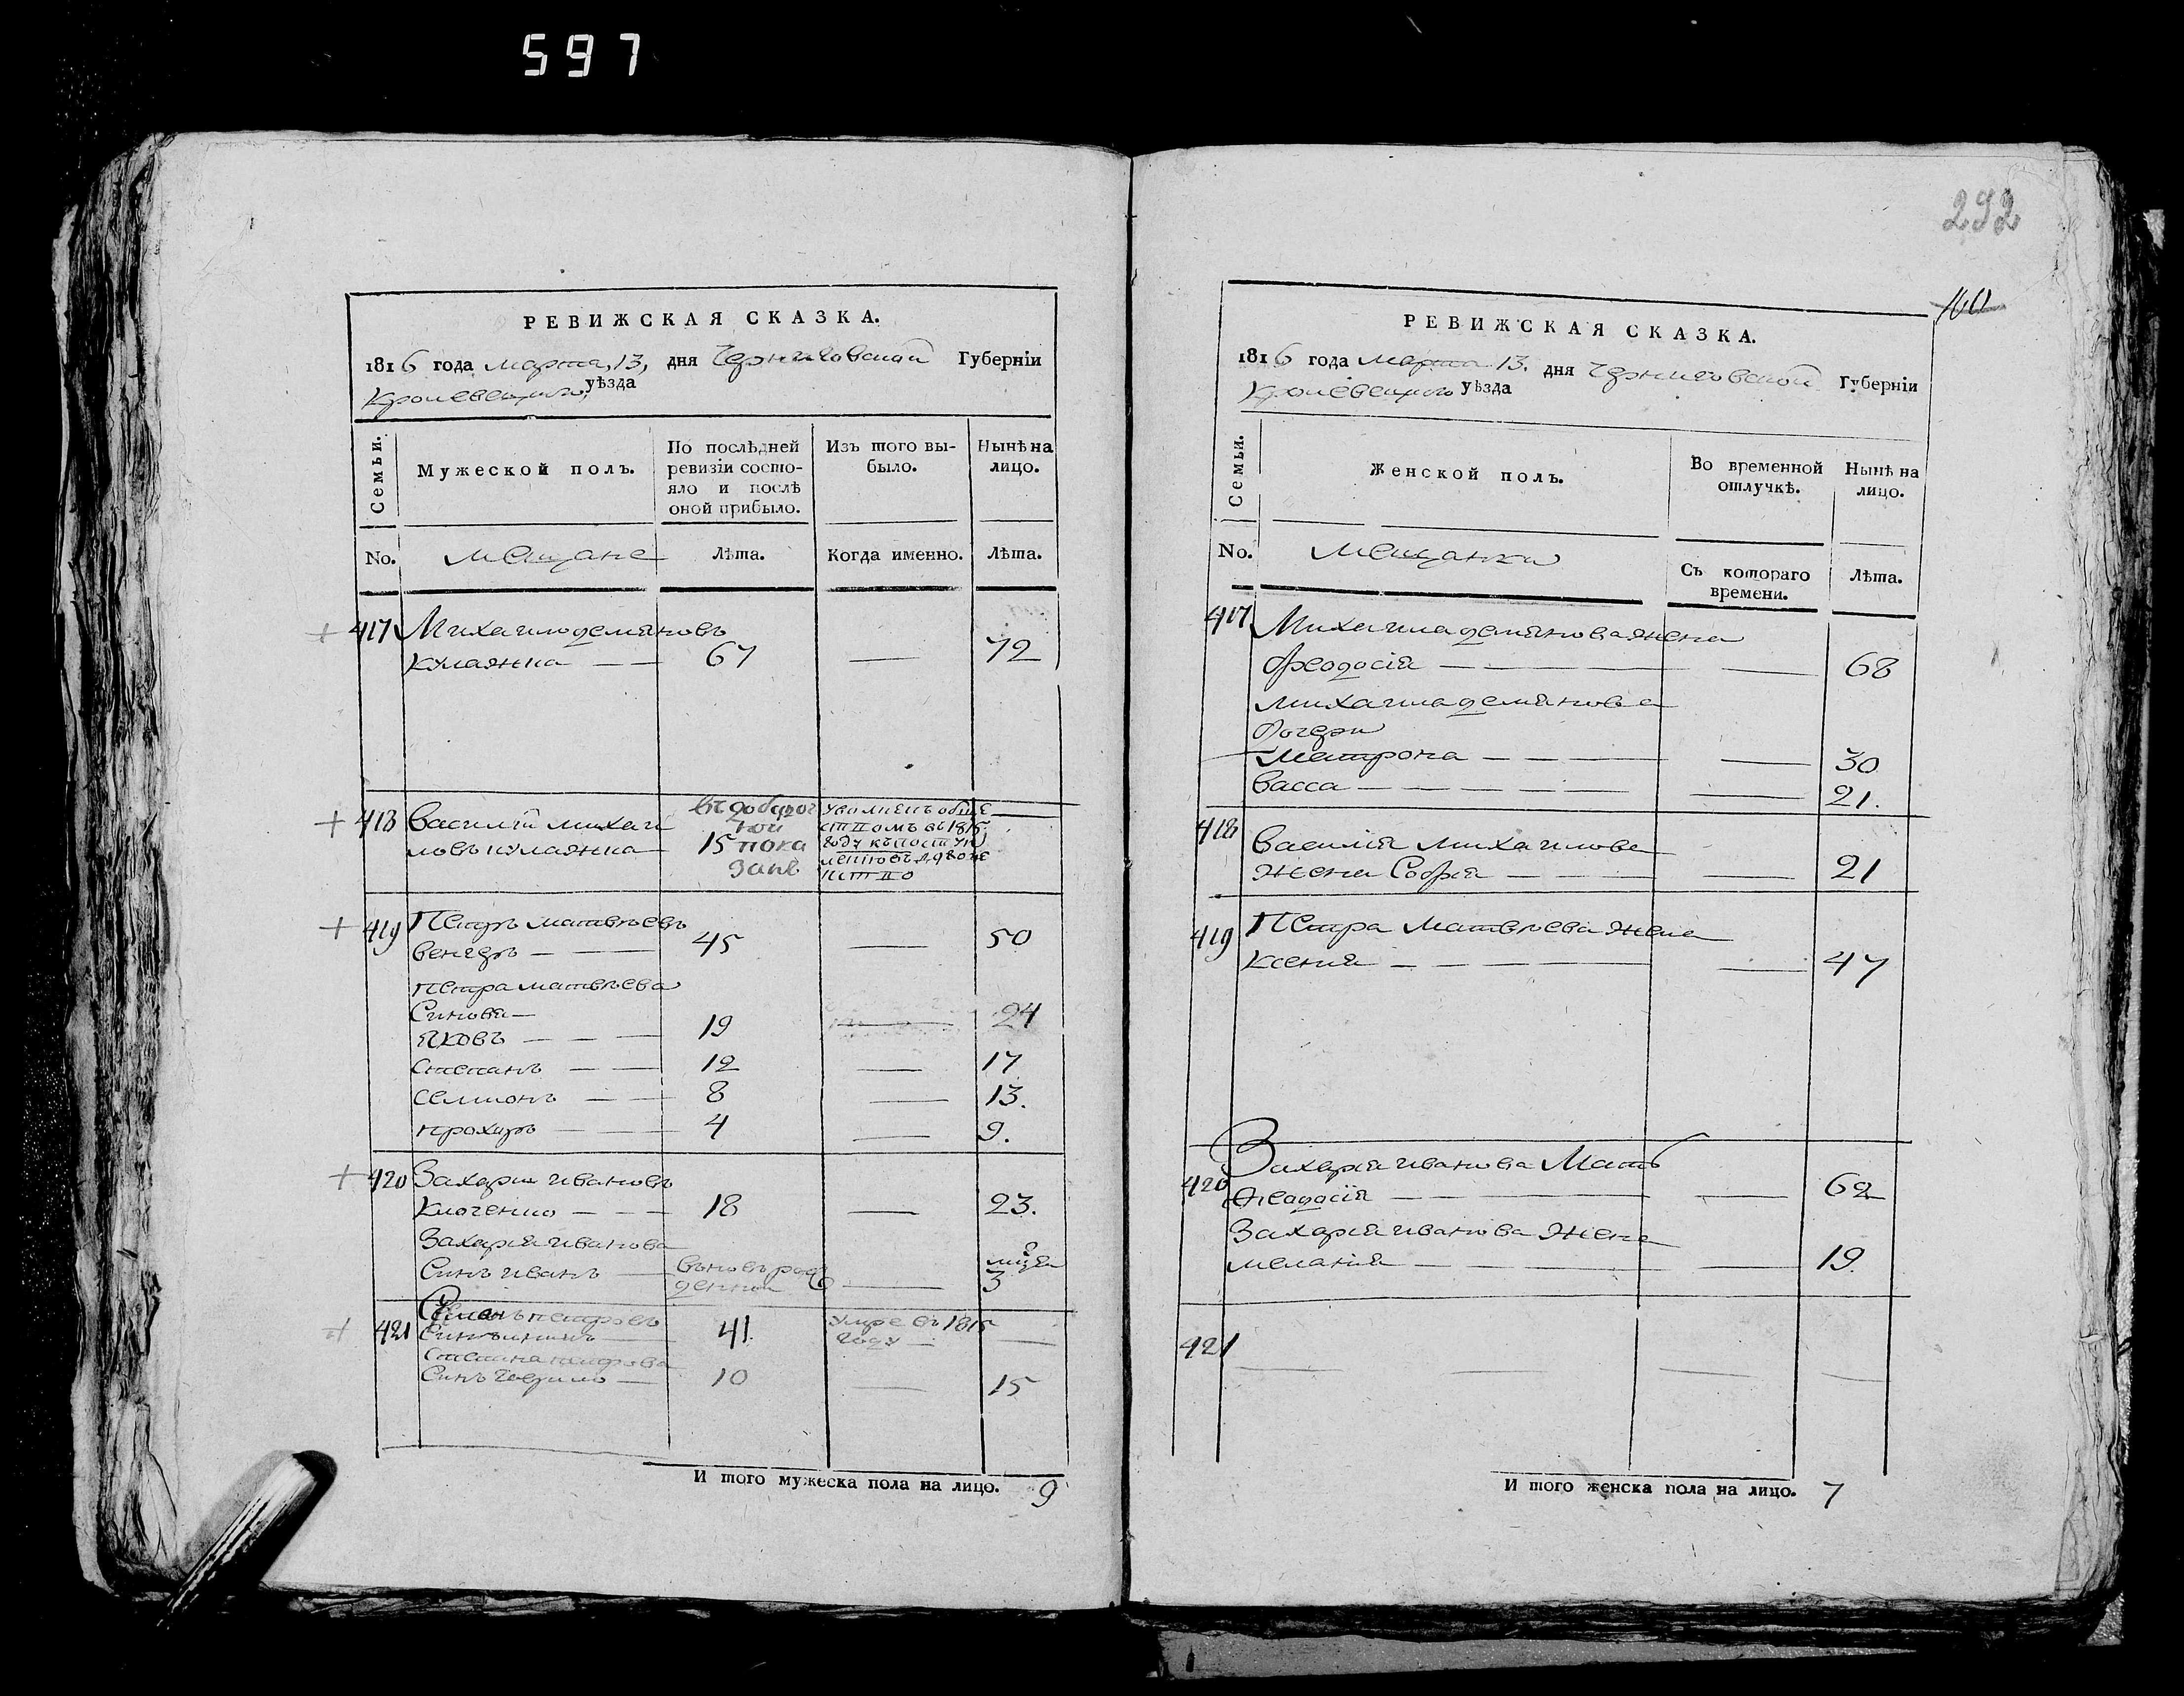 597
РЕВИЖСКАЯ СКАЗКА.
1816 года марта, 13, дня Черниговской Губерніи
Кролевецкого уѣзда
Семьи.
Мужеской полъ.
По послѣдней
ревизіи состо-
яло и послѣ
оной прибыло.
Изъ того вы-
было.
Нынѣ на
лицо.
No. мещане Лѣта. Когда именно. Лѣта.
+ 417 Михаило демяновъ
кулажка 67 — 72
+ 418 василій михаи
ловъ кулажка 15 пока
зан
уволненъ обще
ством въ 1815
году къ поступ
419 Петръ матвѣевъ
венгеръ 45 — 50
петра матвѣева
Синовя
яковъ 19 — 24
степанъ 12 — 17
семионъ 8 — 13.
прохоръ 4 — 9.
+ 420 Захарии ивановъ
Клоченко 18 — 23.
Захарія иванова
Синъ иванъ вьновъ рож
денной 3
421 петровъ
41. умре въ 1815
году —
петрова
Синъ 10 — 15
И того мужеска пола на лицо. 9
292
РЕВИЖСКАЯ СКАЗКА.
1816 года марта 13. дня Черниговской Губерніи
Кролевецкого уѣзда
Семьи.
Женской полъ.
Во временной
отлучкѣ.
Нынѣ на
лицо.
No. Мещанки
Съ котораго
времени.
Лѣта.
417 Михаила демянова жена
феодосія — 68
михаила демянова
Дочери
Матрона — 30
васса — 21.
418 василія михаилова
жена Софія — 21
419 Петра Матвѣева жена
Ксения — 47
420 Захарія иванова Мать
Феодосія — 62
Захарія иванова жена
мелания — 19
421
И того женска пола на лицо. 7